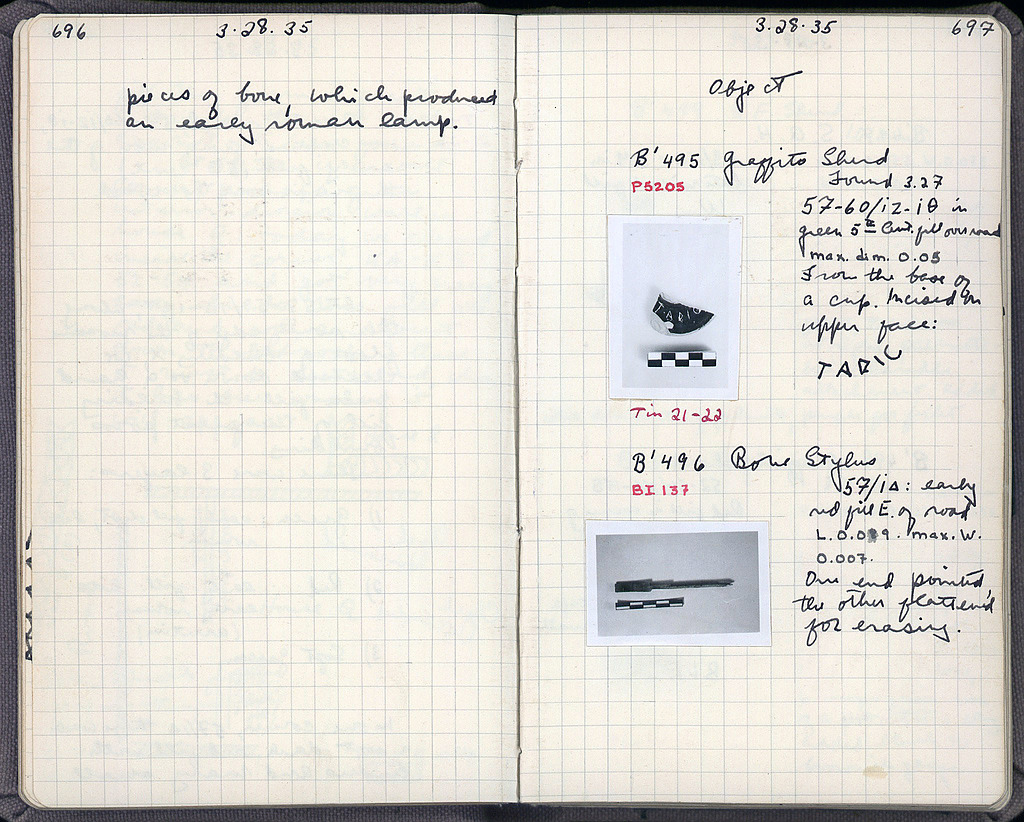 696
3.28.35
pieces of bone, which produced
an early roman lamp.
3.28.35
697
Object
B'495 graffito Sherd
P5205
Found 3.27
57-60/ΙΖ-ΙΘ in
green 5th Cent. fill over road
max. dim. 0.05
From the base of
a cup. Incised on
upper face:
TADIC
Tin 21-22
B'496 Bone Stylus
BI 137
57/ΙΔ: early
red fill E. of road
max. W.
0.007.
One end pointed,
the other flattened
for erasing.